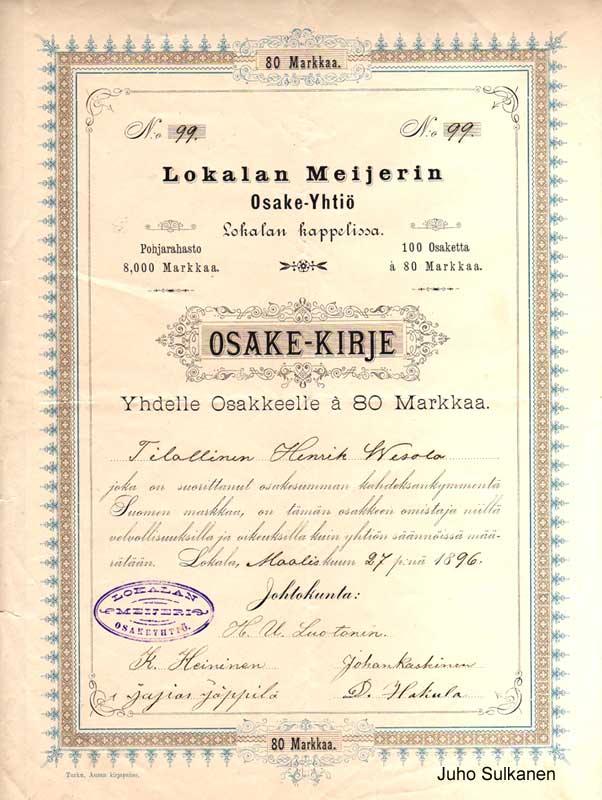 80 Markkaa.
N:o 99. N:o 99.
Lokalan Meijerin
Osake-Yhtiö
Lokalan kappelissa.
Pohjarahasto
8,000 Markkaa.
100 Osaketta
à 80 Markkaa.
OSAKE-KIRJE
Yhdelle Osakkeelle à 80 Markkaa.
Tilallinen Henrik Wesola
joka on suorittanut osakesumman kahdeksankymmentä
Suomen markkaa, on tämän osakkeen omistaja niillä
velvollisuuksilla ja oikeuksilla kuin yhtiön säännöissä mää-
rätään. Lokala, Maaliskuun 27 p:nä 1896.
Johtokunta:
LOKALAN
MEIJERI
OSAKEYHTIÖ.
H. U. Luotonin.
K. Heininen Johan Kaskinen
Jöppilä D. Hakula
80 Markkaa.
Turku, Auran kirjapaino.
Juho Sulkanen